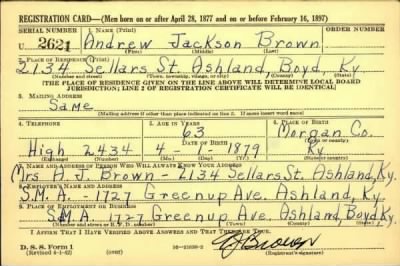 REGISTRATION CARD—(Men born on or after April 28, 1877 and on or before February 16, 1897)
SERIAL NUMBER
1. NAME (Print)
ORDER NUMBER
U 2621 Andrew Jackson Brown
(First) (Middle) (Last)
2. PLACE OF RESIDENCE (Print)
2134 Sellars St. Ashland, Boyd, Ky
(Number and street) (Town, township, village, or city) (County) (State)
[THE PLACE OF RESIDENCE GIVEN ON THE LINE ABOVE WILL DETERMINE LOCAL BOARD
JURISDICTION; LINE 2 OF REGISTRATION CERTIFICATE WILL BE IDENTICAL]
3. MAILING ADDRESS
Same
[Mailing address if other than place indicated on line 2. If same insert word same]
4. TELEPHONE
5. AGE IN YEARS
6. PLACE OF BIRTH
63
Morgan Co.
(Town or county)
DATE OF BIRTH
High 2434 4 - 1 - 1879 Ky
(Exchange) (Number) (Mo.) (Day) (Yr.) (State or country)
7. NAME AND ADDRESS OF PERSON WHO WILL ALWAYS KNOW YOUR ADDRESS
Mrs A. J. Brown - 2134 Sellars St. Ashland, Ky.
8. EMPLOYER'S NAME AND ADDRESS
S.M.A. - 1727 Greenup Ave. Ashland, Ky.
9. PLACE OF EMPLOYMENT OR BUSINESS
S.M.A. 1727 Greenup Ave. Ashland, Boyd Ky.
(Number and street or R. F. D. number) (Town) (County) (State)
I AFFIRM THAT I HAVE VERIFIED ABOVE ANSWERS AND THAT THEY ARE TRUE.
D. S. S. Form 1
(Revised 4-1-42) (over)
Brown
(Registrant's signature)